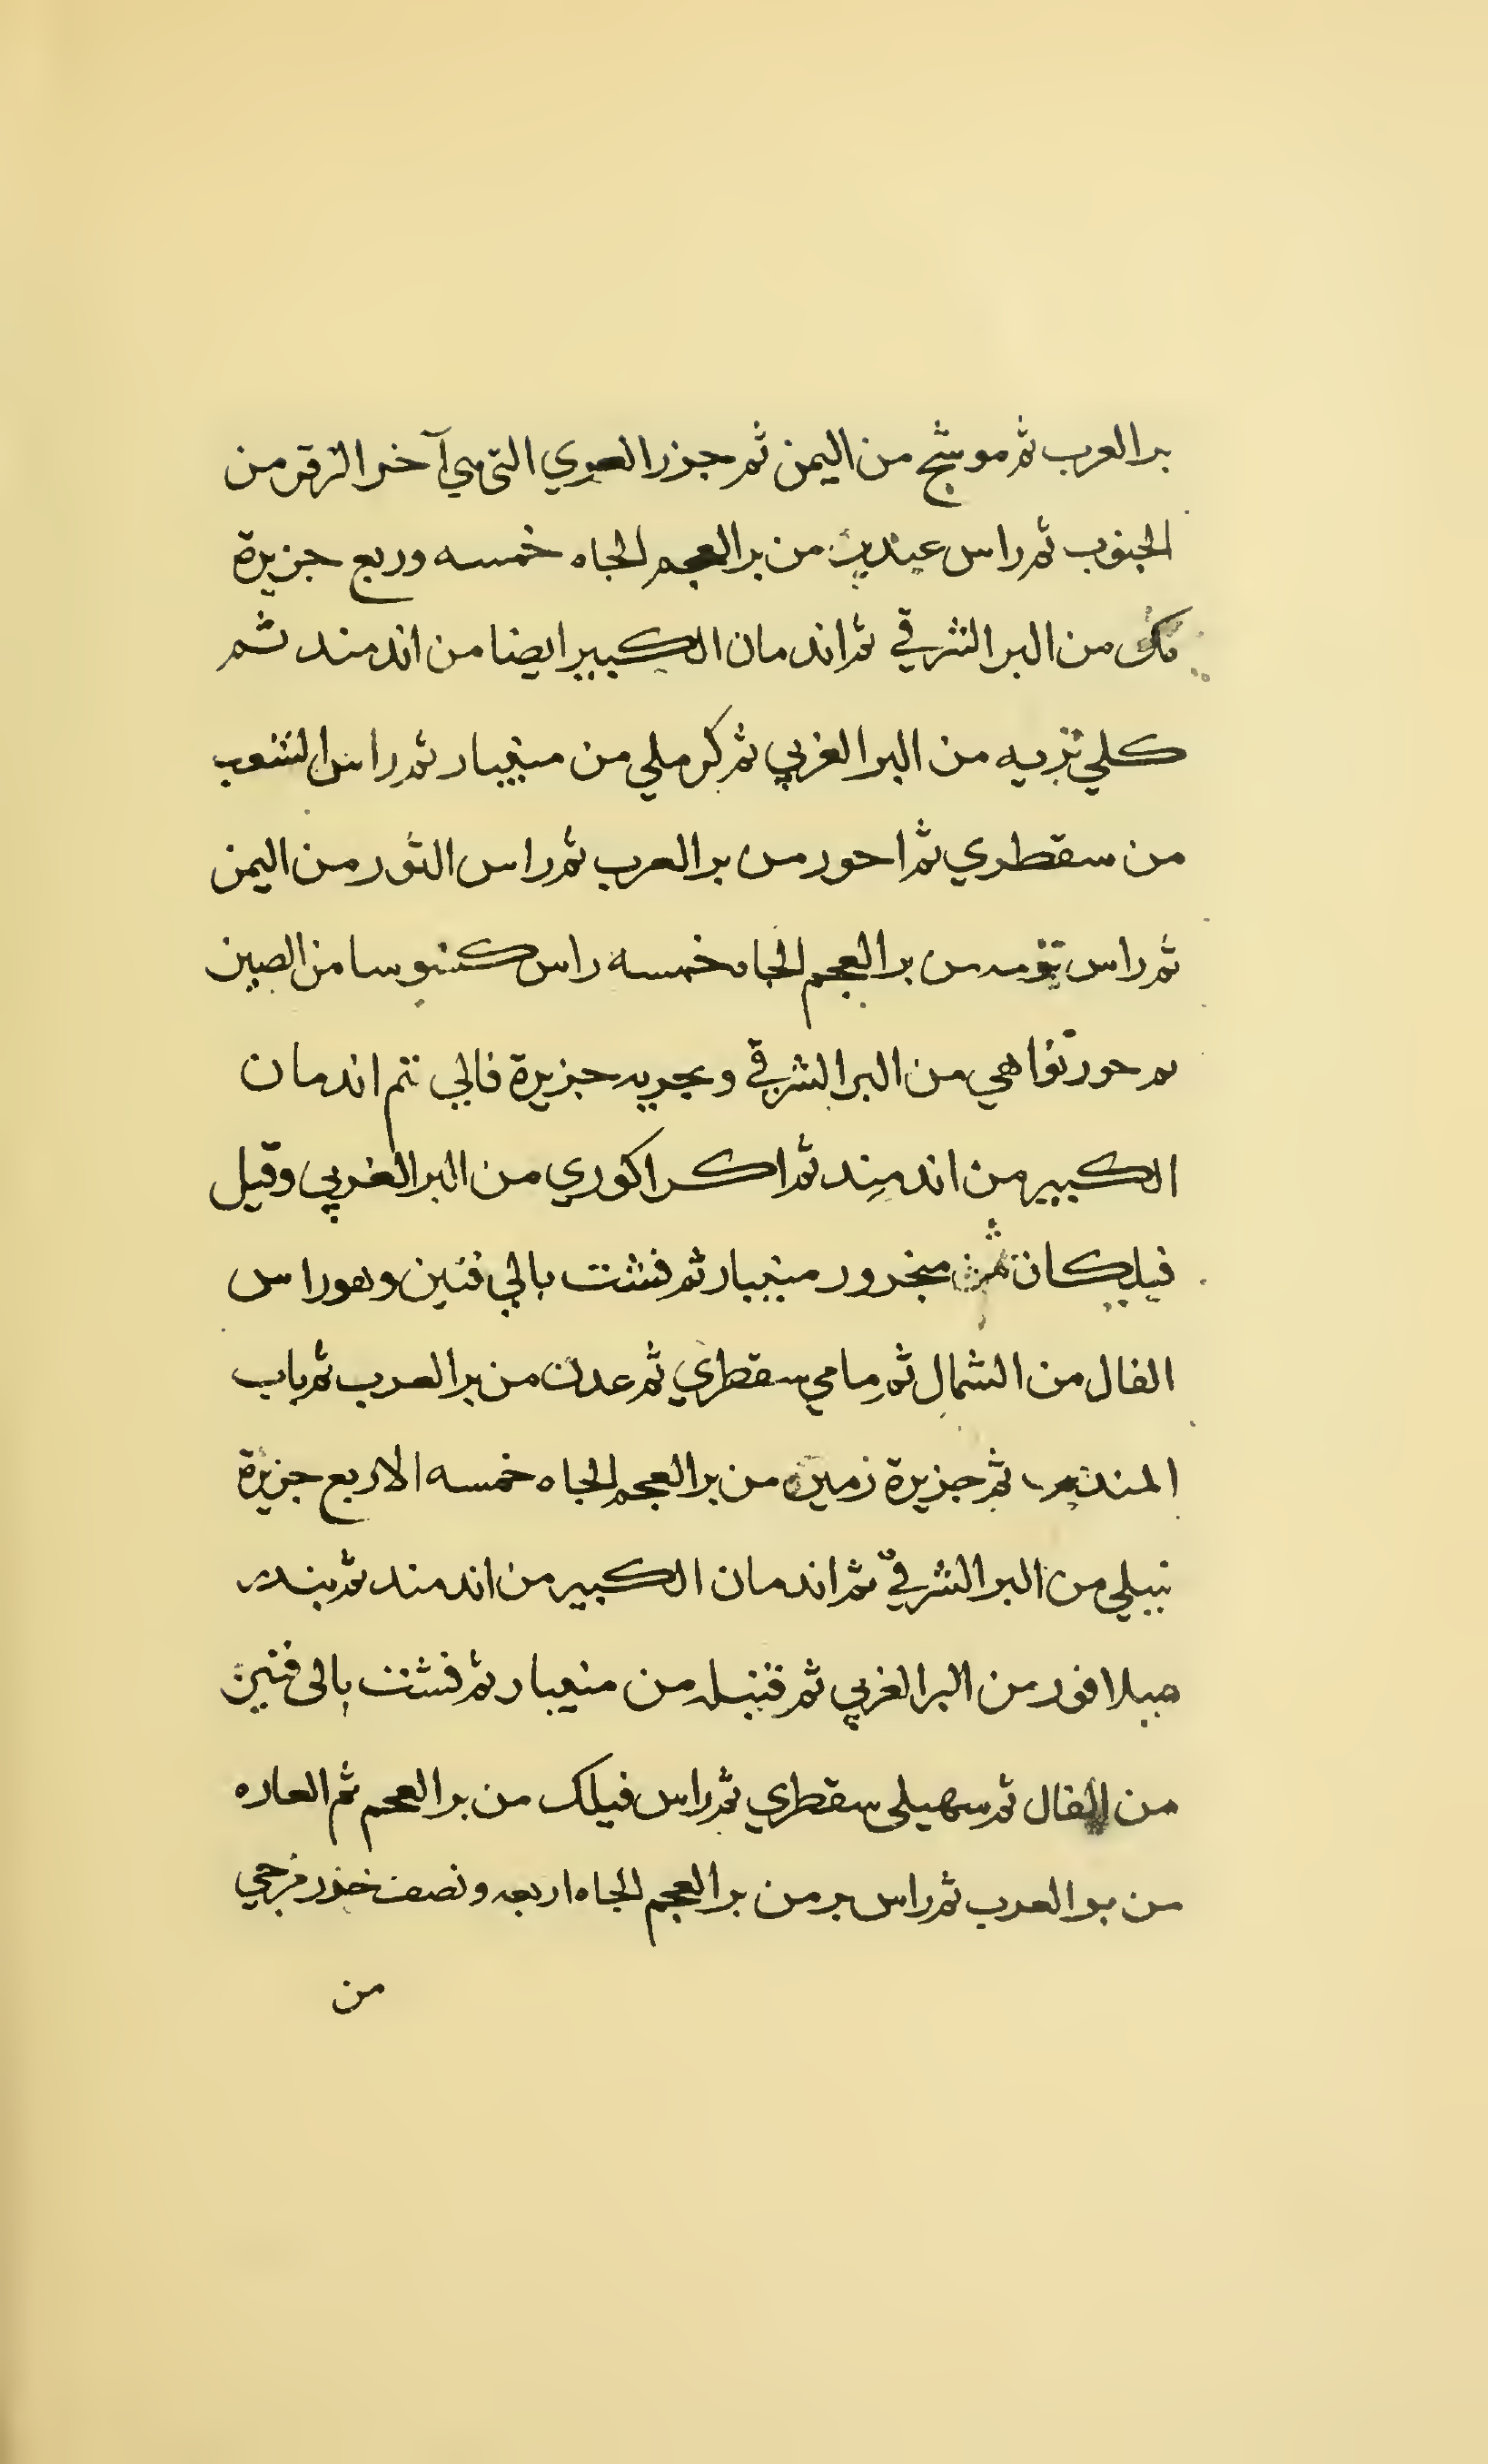 بر العرب ثم موشج من اليمن ثم جزر العوي التي هي آخر الزقر من
الجنوب ثم راس عيديد من بر العجم الجاه خمسه وربع جزيرة
من البر الشرقي ثم اندمان الكبير ايضا من اندمند ثم
كلي تزيه من البر الغربي ثم كرملي من منيبار ثم راس الشعب
من سقطري ثم احور من بر العرب ثم راس الثور من اليمن
ثم راس من بر العجم الجاه خمسه راس كنبوسا من الصين
ثم حور تواهي من البر الشرقي وبجربه جزيرة فالي ثم اندمان
الكبير من اندمند ثم اكراكوري من البر الغربي وقيل
فيلكان ثم منجرور منيبار ثم فشت بالي فنين وهو راس
الفال من الشمال ثم مامي سقطري ثم عدن من بر العرب ثم باب
المندب ثم جزيرة زمين من بر العجم الجاه خمسه الا ربع جزيرة
نبيلي من البر الشرقي ثم اندمان الكبير من اندمند ثم بندر
ميلافور من البر الغربي ثم من منيبار ثم فشت بالي فنين
من الفال ثم سهيلي سقطري ثم راس فيلك من بر العجم ثم العاره
من بر العرب ثم راس بر من بر العجم الجاه اربعه ونصف فرجي
من